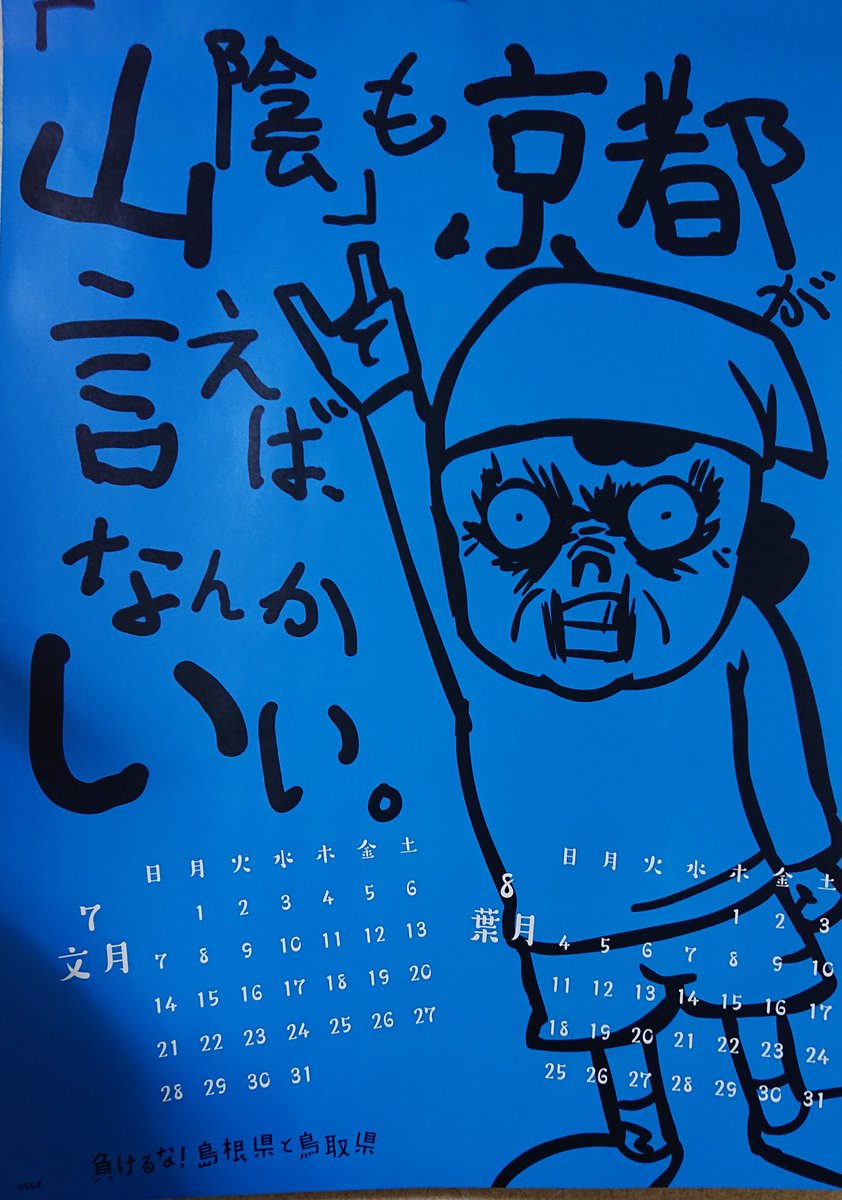 「山陰」も、京都が
言えば、
なんか
いい。
7
文月
日 月 火 水 木 金 土
1 2 3 4 5 6
7 8 9 10 11 12 13
14 15 16 17 18 19 20
21 22 23 24 25 26 27
28 29 30 31
8
葉月
日 月 火 水 木 金 土
1 2 3
4 5 6 7 8 9 10
11 12 13 14 15 16 17
18 19 20 21 22 23 24
25 26 27 28 29 30 31
負けるな!島根県と鳥取県
©DLE